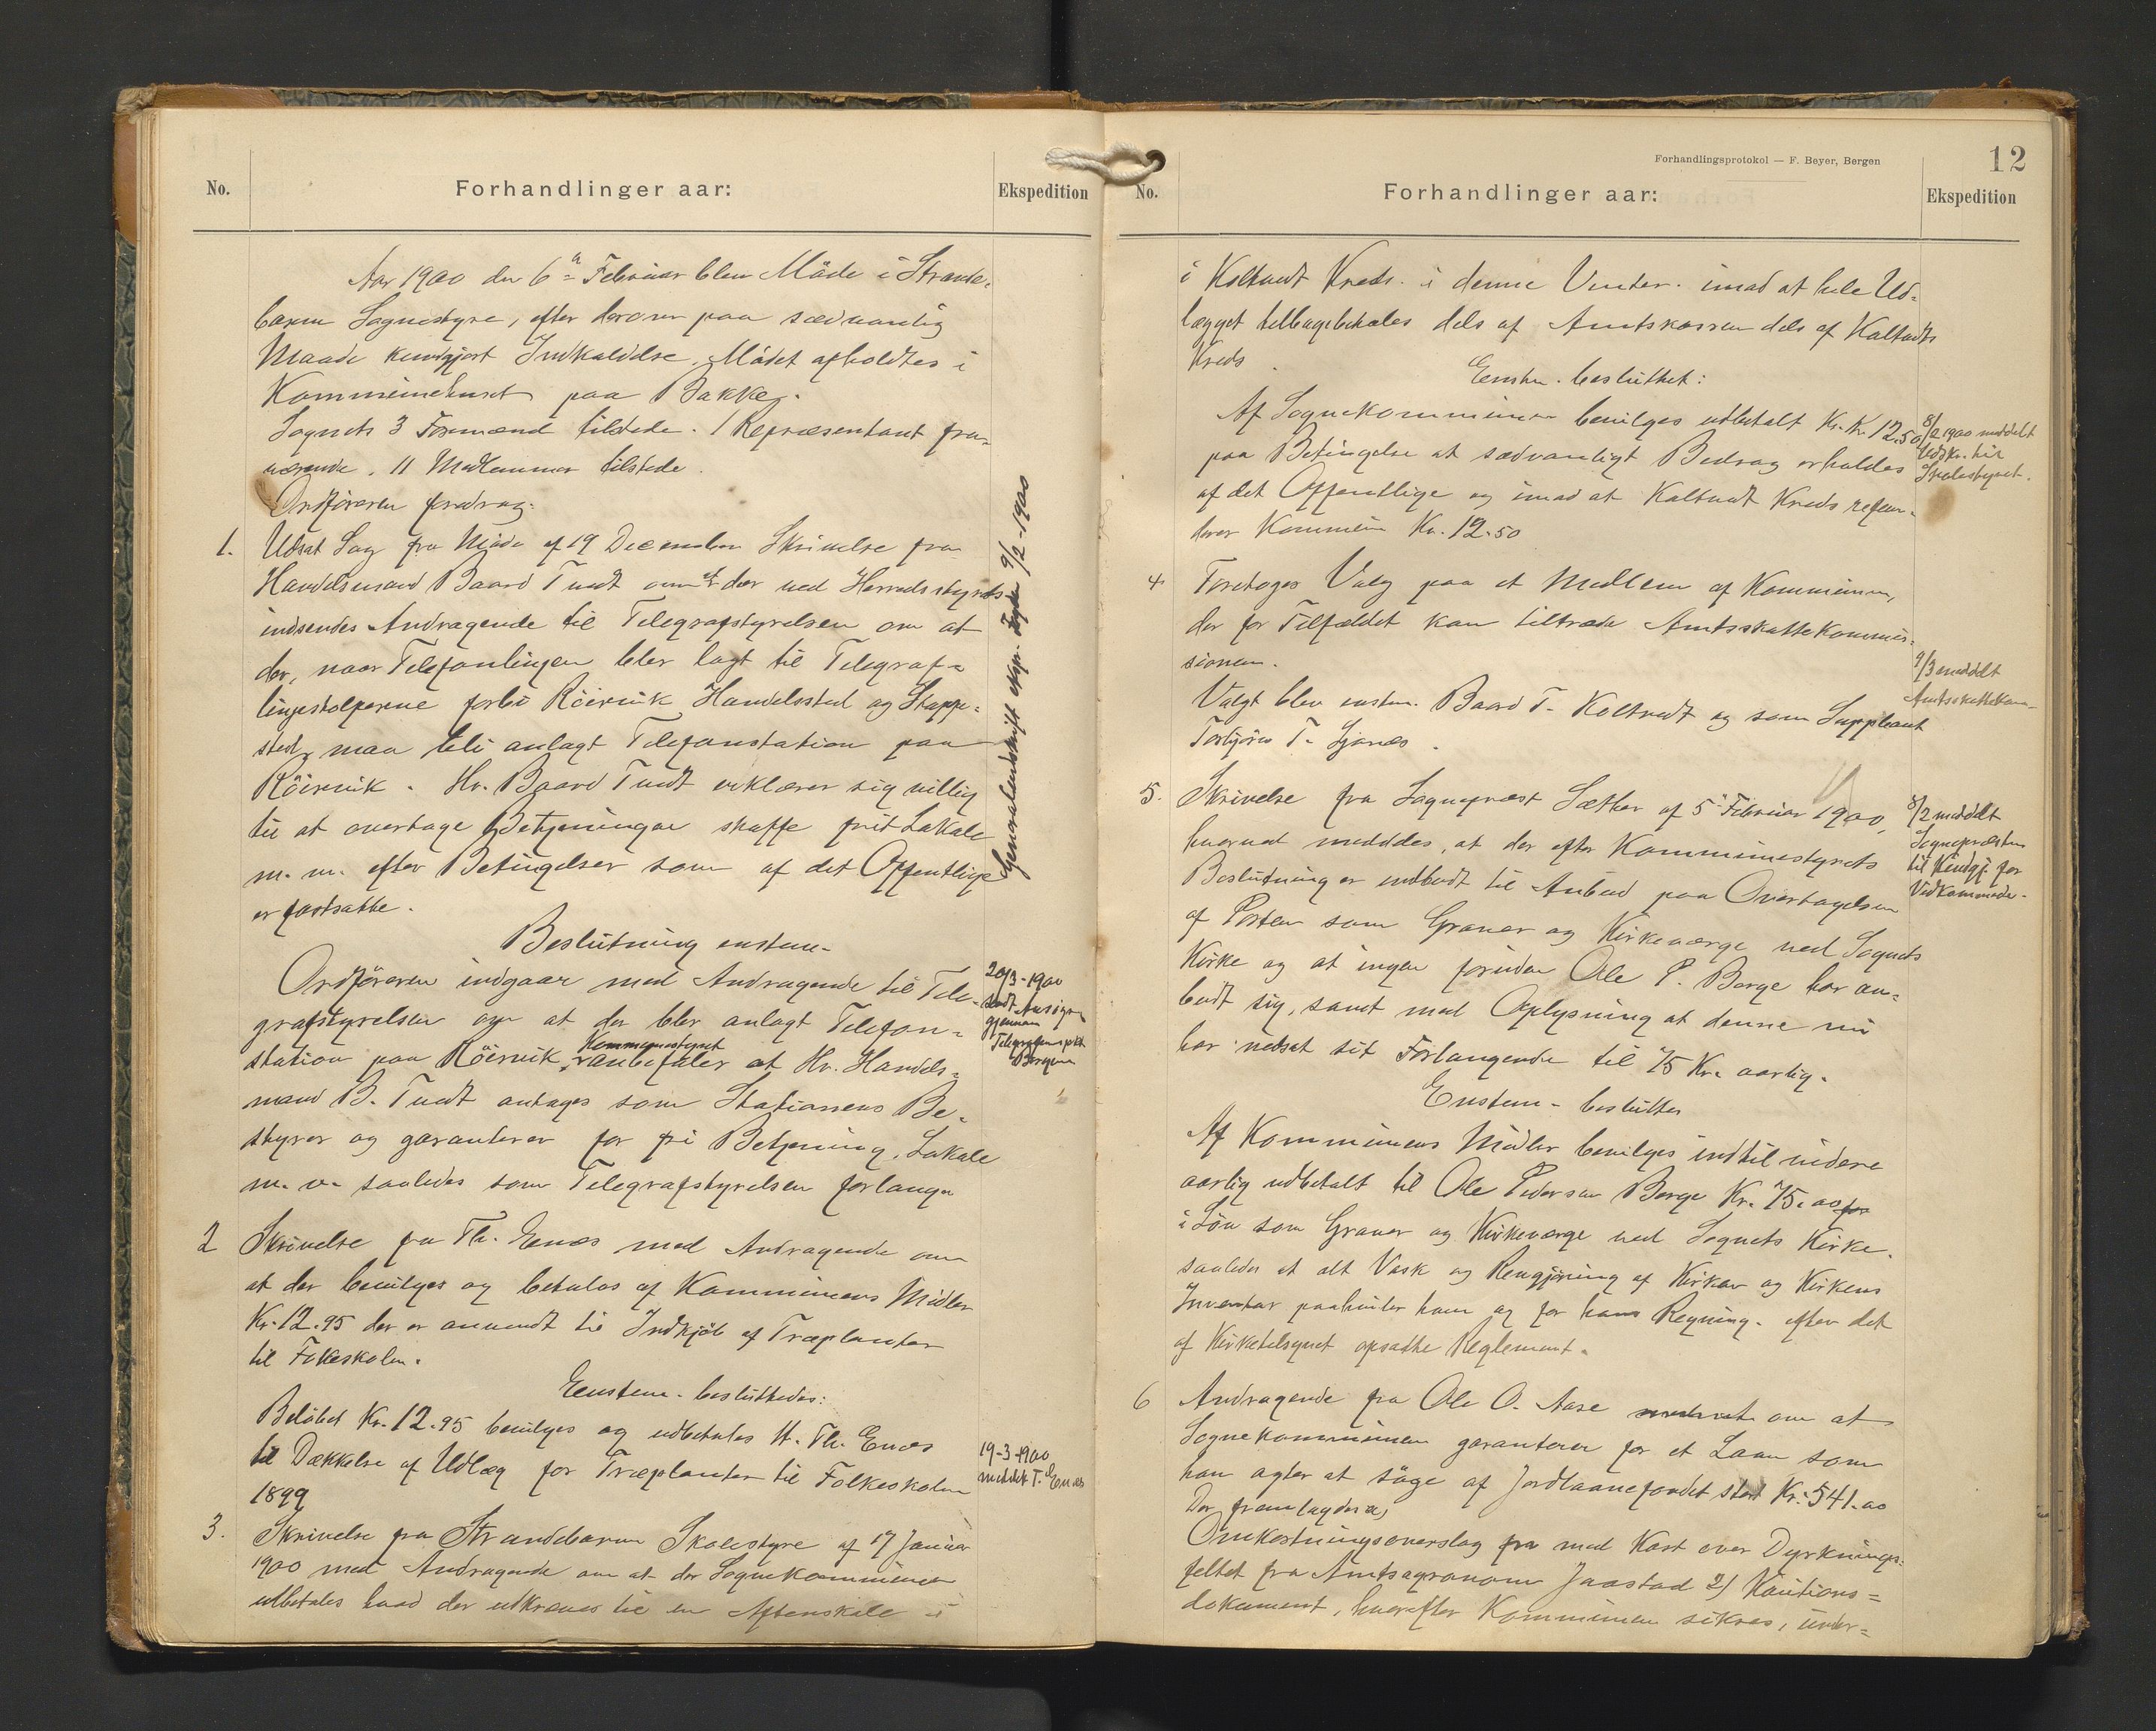 No.
Forhandlinger aar:
Ekspedition
Aar 1900 den 6te Februar blev Möde i Strande-
barm Sognestyre, efter derom paa sædvanlig
Maade kundgjort Indkaldelse. Mödet afholdtes i
Kommunehuset paa Bakke.
Sognets 3 Formænd tilstede. 1 Repræsentant fra-
værende. 11 Medlemmer tilstede.
Ordföreren foredrog:
1. Udsat Sag fra Möde af 19 December Skrivelse fra
Handelsmand Baard Tvedt om at der ved Herredsstyrets
indsendes Andragende til Telegrafstyrelsen om at
der, naar Telefonlinjen blev lagt til Telegraf-
linjestolperne forbi Röirvik Handelssted og Stoppe-
sted, maa bli anlagt Telefonstation paa
Röirvik. Hr. Baard Tvedt erklærer sig villig
til at overtage Betjeningen skaffe frit Lokale
m. m. efter Betingelser som af det Offentlige
er fastsatte.
Generaludskrift expr. 9/2-1900
Beslutning enstem-
Ordföreren indgaar med Andragende til Tele-
grafstyrelsen om at der blev anlagt Telefon-
station paa Röirvik, Kommunestyret anbefaler at Hr. Handels-
mand B. Tvedt antages som Stationens Be-
styrer og garanterer for fri Betjening, Lokale
m. v. saaledes som Telegrafstyrelsen forlanger
20/3-1900
sendt Ansögn
gjennem
Bergen
2 Skrivelse fra Th. Enæs med Andragende om
at der bevilges og betales af Kommunens Midler
Kr. 12.95 der er anvendt til Indkjöb af Træplanter
til Folkeskolen.
Enstem. besluttedes:
Belöbet Kr. 12.95 bevilges og udbetales H. Th. Enæs
til Dækkelse af Udlæg for Træplanter til Folkeskolen
1899
19-3-1900
meddelt T. Enæs
3. Skrivelse fra Strandebarm Skolestyre af 17 Januar
1900 med Andragende om at der Sognekommunen
udbetales hvad der udkræves til en Aftenskole i
Forhandlingsprotokol — F. Beyer, Bergen
12
No.
Forhandlinger aar:
Ekspedition
i Koltvedt Kreds i denne Vinter. imod at hele Ud-
lægget tilbagebetales dels af Amtskassen dels af Koltvedt
Kreds
Enstem. besluttet:
Af Sognekommunen bevilges udbetalt Kr. 12.50
paa Betingelse at sædvanligt Bidrag erholdes
af det Offentlige og imod at Koltvedt Kreds refun-
derer Kommunen Kr. 12.50
8/2 1900 meddelt
Udskr. til
Skolestyret.
4 Foretoges Valg paa et Medlem af Kommunen,
der for Tilfældet kan tiltræde Amtsskattekommis-
sionen.
Valgt blev enstem. Baard T. Koltvedt og som Suppleant
Torbjörn T. Sjonæs.
9/3 meddelt
Amtsskattekom-
5. Skrivelse fra Sogneprest Sæther af 5 Februar 1900,
hvorved meddeles, at der efter Kommunestyrets
Beslutning er indbudt til Anbud paa Overtagelsen
af Posten som Graver og Kirkeværge ved Sognets
Kirke og at ingen foruden Ole P. Berge har an-
budt sig, samt med Oplysning at denne nu
har nedsat sit Forlangende til 75 Kr. aarlig.
8/2 meddelt
Sognepræsten
til Kundgj. for
Vedkommende.
Enstem- besluttes
Af Kommunens Midler bevilges indtil videre
aarlig udbetalt til Ole Pedersen Berge Kr. 75.00 for
i Lön som Graver og Kirkeværge ved Sognets Kirke.
saaledes at alt Vask og Rengjöring af Kirken og Kirkens
Inventar paahviler ham og for hans Regning. efter det
af Kirketilsynet opsatte Reglement.
6 Andragende fra Ole O. Aase om at
Sognekommunen garanterer for et Laan som
han agter at söge af Jordlaanefondet stort Kr. 541.00
Der fremlagdes a)
Omkostningsoverslag fra med Kart over Dyrknings-
feltet fra Amtsagronom Jaastad 2) Kautions-
dokument, hvorefter Kommunen sikres, under-